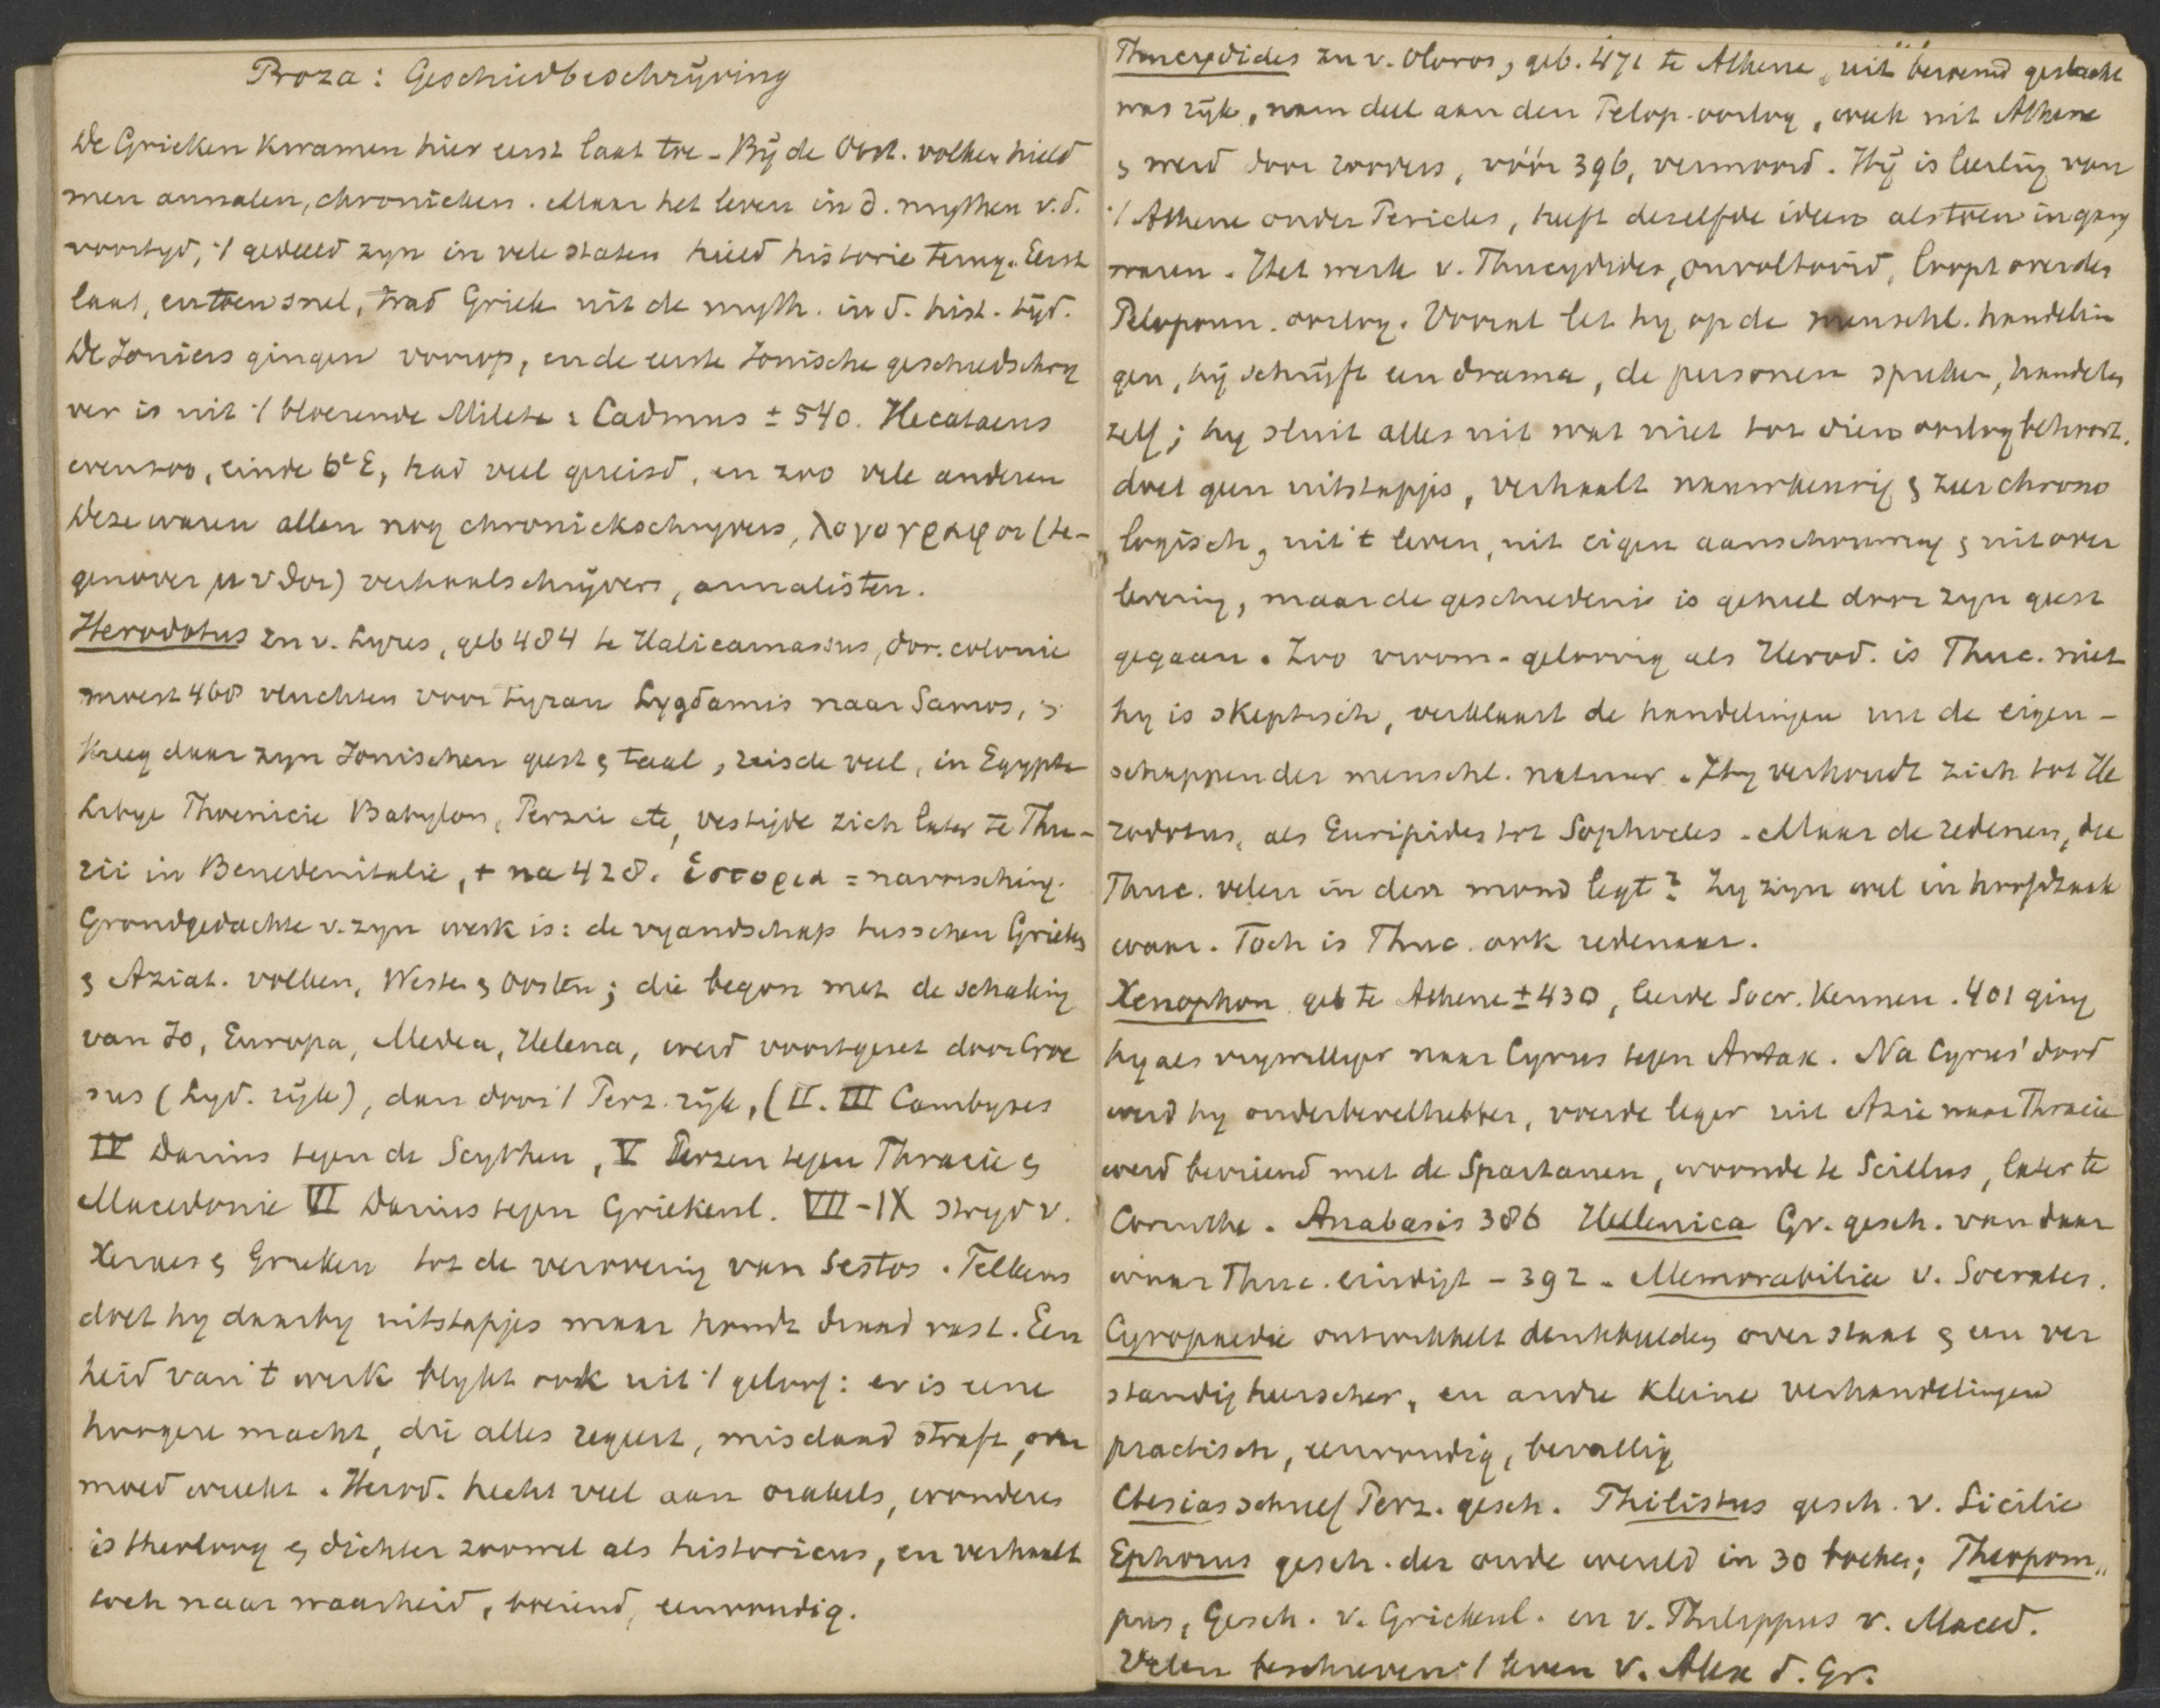 Proza: Geschiedbeschrijving
De Grieken kwamen hier eerst laat toe - Bij de Oost. volken hield
men annalen, chronieken. Maar het leven in d. mythen v.d.
voortyd, 't gedeeld zyn in vele staten hield historie terug. Eerst
laat, en toen snel, trad Griek. uit de myth. in d. hist. tijd.
De Ioniers gingen voorop, en de eerste Ionische geschiedschry
ver is uit 't bloeiende Milete: Cadmus ± 540. Hecataeus
evenzoo, einde 6e E, had veel gereisd, en zoo vele anderen
Deze waren allen nog chroniekschryvers, λογογραφοι (te-
genover μυθοι) verhaalschrijvers, annalisten.
Herodotus zn v. Lyxes, geb 484 te Halicarnassus, dor. colonie
moest 468 vluchten voor tyran Lygdamis naar Samos, &
kreeg daar zyn Ionischen geest & taal, reisde veel, in Egypte
Libye Phoenicie Babylon, Perzie etc, vestigde zich later te Thu-
rii in Benedenitalie, + na 428. ἱστορια = navorsching.
Grondgedachte v. zyn werk is: de vyandschap tusschen Grieken
& Aziat. volken, Westen & Oosten; die begon met de schaking
van Io, Europa, Medea, Helena, werd voortgezet door Croe
sus (Lyd. rijk), dan door 't Perz. rijk, (II. III Cambyses
IV Darius tegen de Scythen, V Perzen tegen Thracie &
Macedonie VI Darius tegen Griekenl. VII-IX stryd v.
Xerxes & Grieken tot de verovering van Sestos. Telkens
doet hy daarby uitstapjes maar houdt draad vast. Een
heid van 't werk blykt ook uit 't geloof: er is eene
hoogere macht, die alles regeert, misdaad straft, over
moed wreekt. Herod. hecht veel aan orakels, wonderen
is theoloog & dichter zoowel als historicus, en verhaalt
toch naar waarheid, boeiend, eenvoudig.
Thucydides zn v. Oloros, geb. 471 te Athene, uit beroemd geslacht
was rijk, nam deel aan den Pelop. oorlog, week uit Athene
& werd door roovers, vóór 396, vermoord. Hij is leerling van
't Athene onder Pericles, heeft dezelfde ideeen als toen in gang
waren. Het werk v. Thucydides, onvoltooid, loopt over den
Peloponn. oorlog. Vooral let hy op de menschl. handelin
gen, hij schrijft een drama, de personen spreken, handelen
zelf; hy sluit alles uit wat niet tot dien oorlog behoort.
doet geen uitstapjes, verhaalt nauwkeurig & zeer chrono
logisch, uit 't leven, uit eigen aanschouwing & uit over
levering, maar de geschiedenis is geheel door zyn geest
gegaan. Zoo vroom-geloovig als Herod. is Thuc. niet
hy is skeptisch, verklaart de handelingen uit de eigen-
schappen der menschl. natuur. Hy verhoudt zich tot He
rodotus, als Euripides tot Sophocles. Maar de redenen, die
Thuc. velen in den mond legt? Zy zijn wel in hoofdzaak
waar. Toch is Thuc. ook redenaar.
Xenophon geb te Athene ± 430, leerde Socr. kennen. 401 ging
hy als vrywilliger naar Cyrus tegen Artax. Na Cyrus' dood
werd hy onderbevelhebber, voerde leger uit Azie naar Thracie
werd bevriend met de Spartanen, woonde te Scillus, later te
Corinthe. Anabasis 386 Hellenica Gr. gesch. van daar
waar Thuc. eindigt - 392. Memorabilia v. Socrates.
Cyropaedie ontwikkelt denkbeelden over staat & een ver
standig heerscher, en andre kleine verhandelingen
practisch, eenvoudig, bevallig
Ctesias schreef Perz. gesch. Philistus gesch. v. Sicilie
Ephorus gesch. der oude wereld in 30 boeken; Theopom„
pus, Gesch. v. Griekenl. en v. Philippus v. Maced.
Velen beschreven 't leven v. Alex d. Gr.